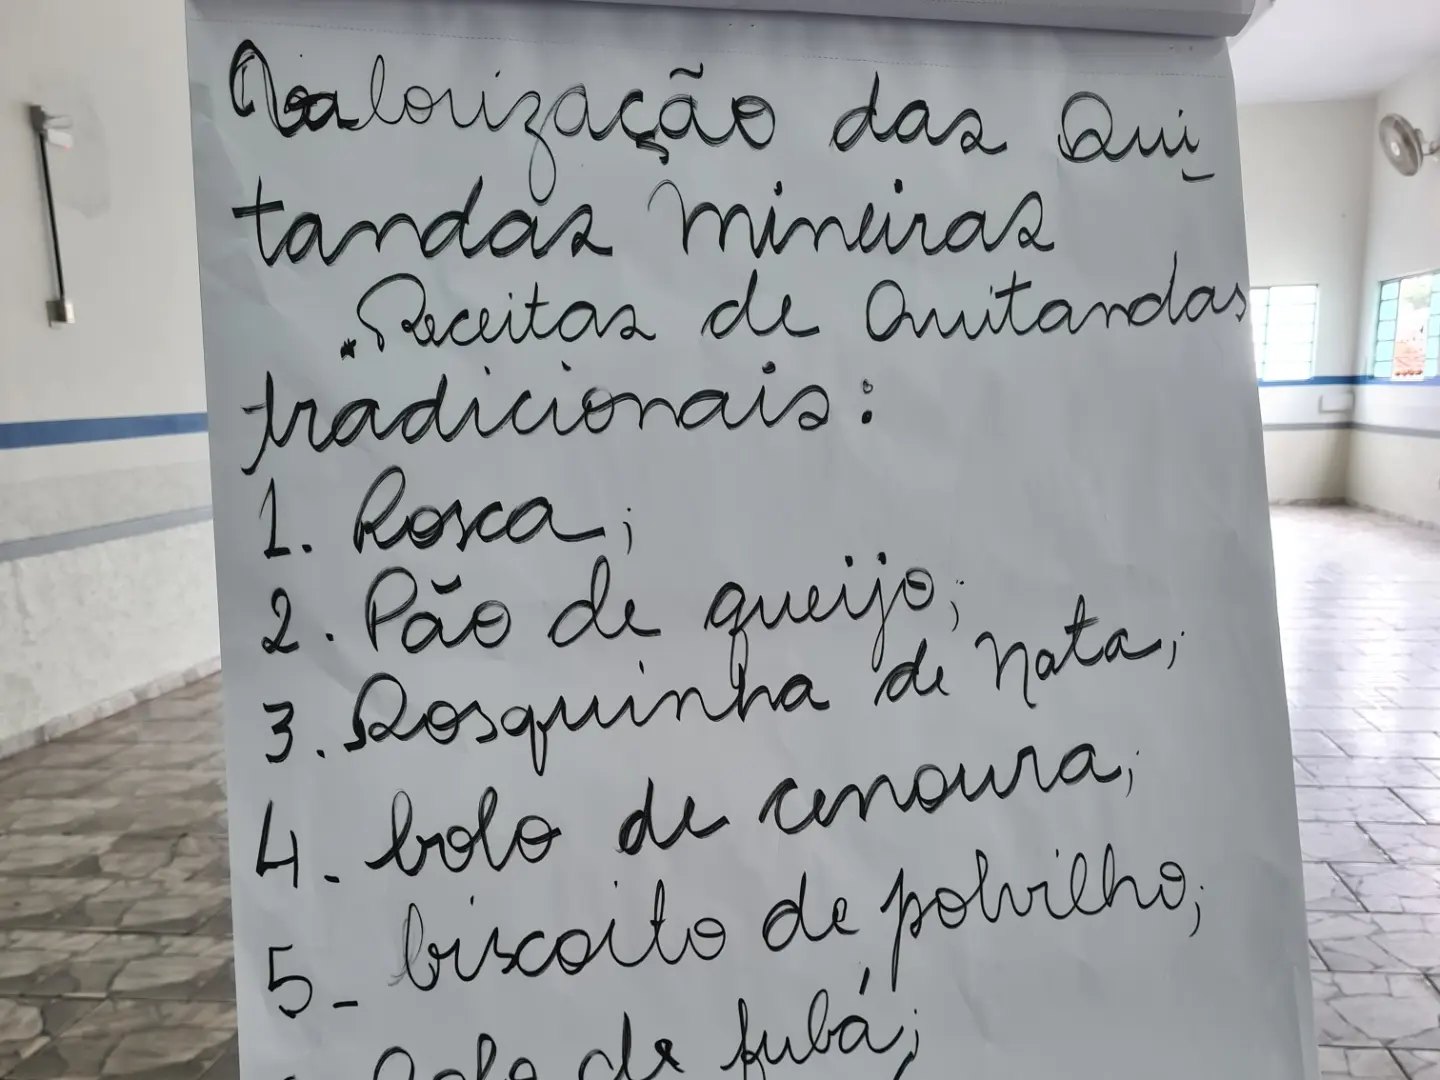 Valorização das Qui
tandas mineiras
. Receitas de Quitandas
tradicionais:
1. Rosca;
2. Pão de queijo;
3. Rosquinha de nata;
4- bolo de cenoura;
5- biscoito de polvilho;
Bolo de fubá;